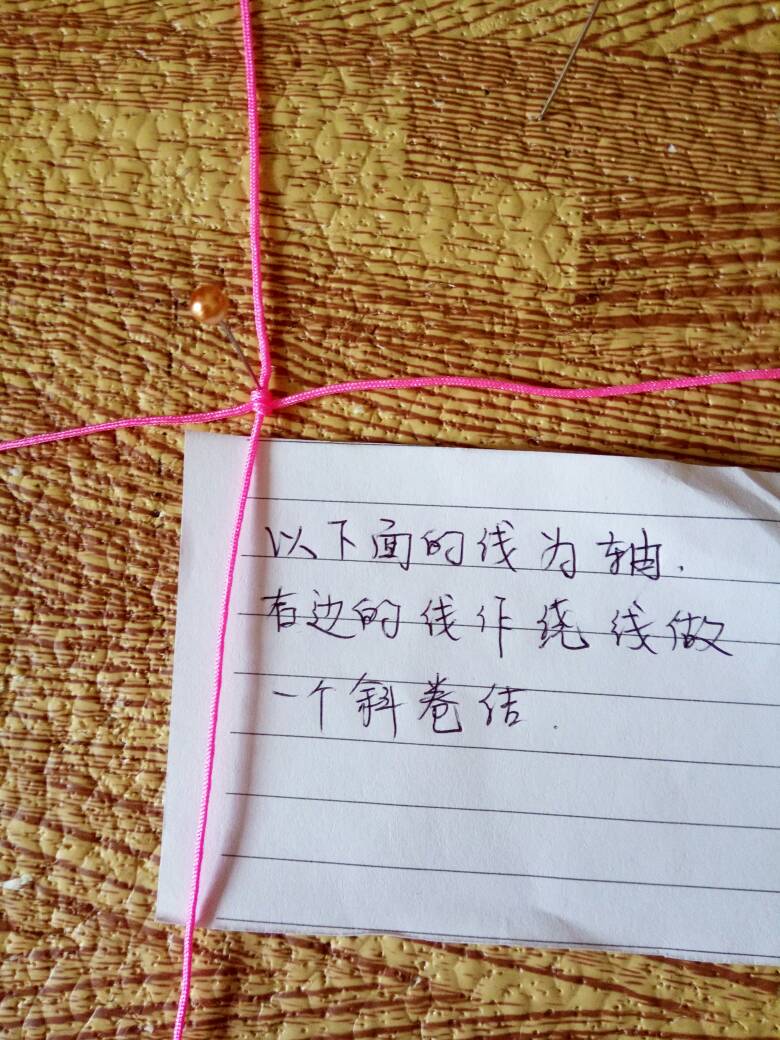 以下面的线为轴.
右边的线作绕线做
一个斜卷结.